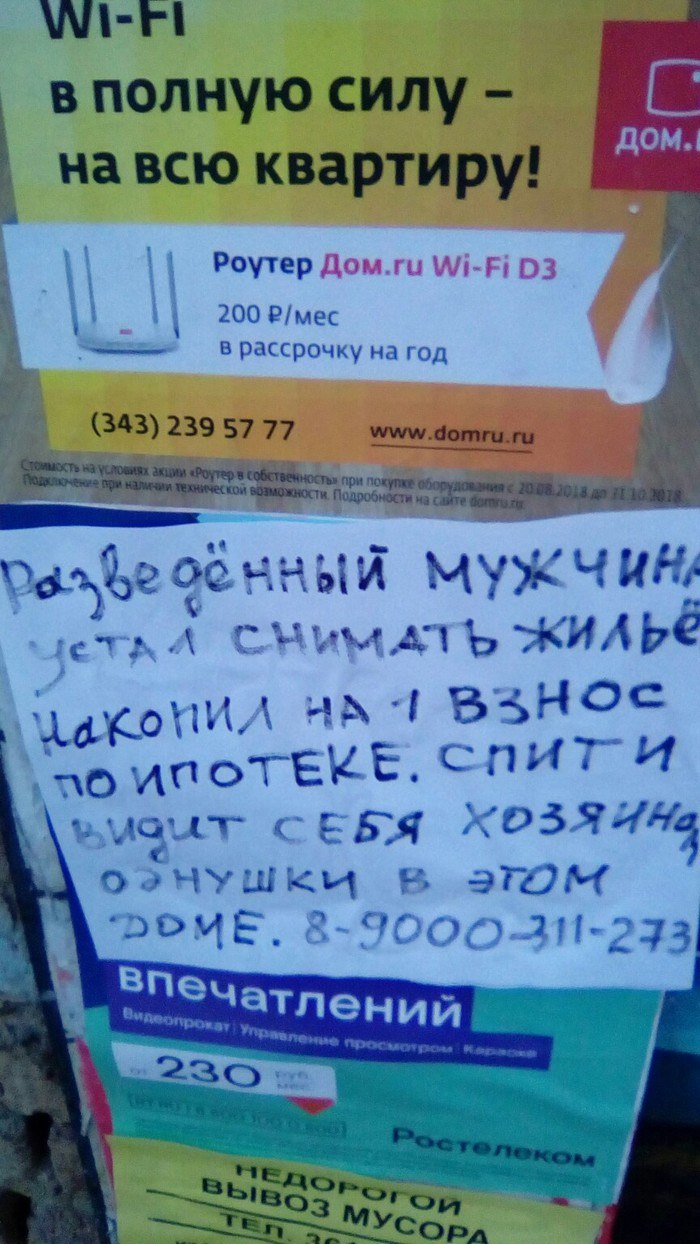 Wi-Fi
в полную силу –
на всю квартиру!
ДОМ.
Роутер Дом.ru Wi-Fi D3
200 ₽/мес
в рассрочку на год
(343) 239 57 77
www.domru.ru
Стоимость на условиях акции «Роутер в собственность» при покупке оборудования с 20.08.2018 до 31.10.2018.
Подключение при наличии технической возможности. Подробности на сайте domru.ru
Разведённый МУЖЧИНА
УСТАЛ СНИМАТЬ ЖИЛЬЁ
НАКОПИЛ НА 1 ВЗНОС
ПО ИПОТЕКЕ. СПИТ И
ВИДИТ СЕБЯ ХОЗЯИНО
ОДНУШКИ В ЭТОМ
ДОМЕ. 8-9000-311-273
впечатлений
Видеопрокат | Управление просмотром | Караоке
от 230 руб. мес.
Ростелеком
НЕДОРОГОЙ
ВЫВОЗ МУСОРА
ТЕЛ.